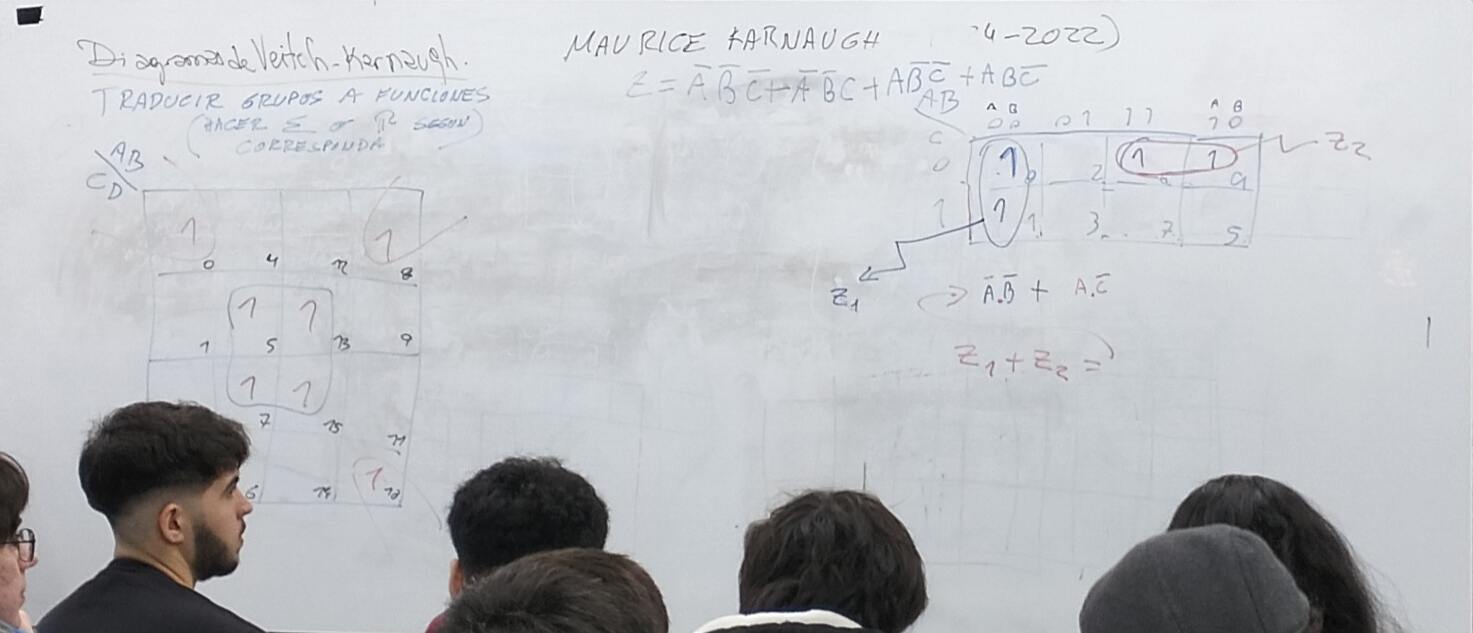 Diagramas de Veitch-Karnaugh.
TRADUCIR GRUPOS A FUNCIONES
(HACER Σ o π SEGUN
CORRESPONDA)
AB
CD
1 1
0 4 12 8
1 1
1 5 13 9
1 1
7 15 11
1
6 14 10
MAURICE KARNAUGH 4-2022)
Z = A̅ B̅ C̅ + A̅ B̅ C + A B̅ C̅ + A B C̅
AB
A B A B
C 00 01 11 10
0 1 0 2 1 1
1 1 1 3 7 5
Z2
Z1
=> A̅.B̅ + A.C̅
Z1 + Z2 =